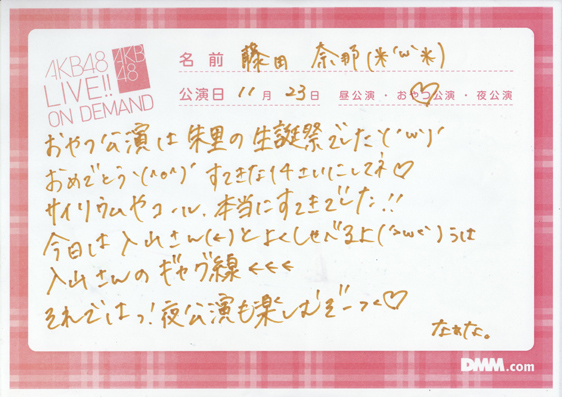 AKB48
LIVE!!
ON DEMAND
AKB
48
名前 藤田 奈那(*'ω'*)
公演日 11月23日 昼公演・おやつ公演・夜公演
おやつ公演は朱里の生誕祭でしたヽ('ω')ノ
おめでとうヽ(^o^)ノ すてきな14さいにしてネ♡
サイリウムやコール、本当にすてきでした!!
今日は入山さん(←)とよくしゃべるよ('>ω<')うは
入山さんのギャグ線←←←
それではっ!夜公演も楽しむぞーっ♡
なぁな。
DMM.com